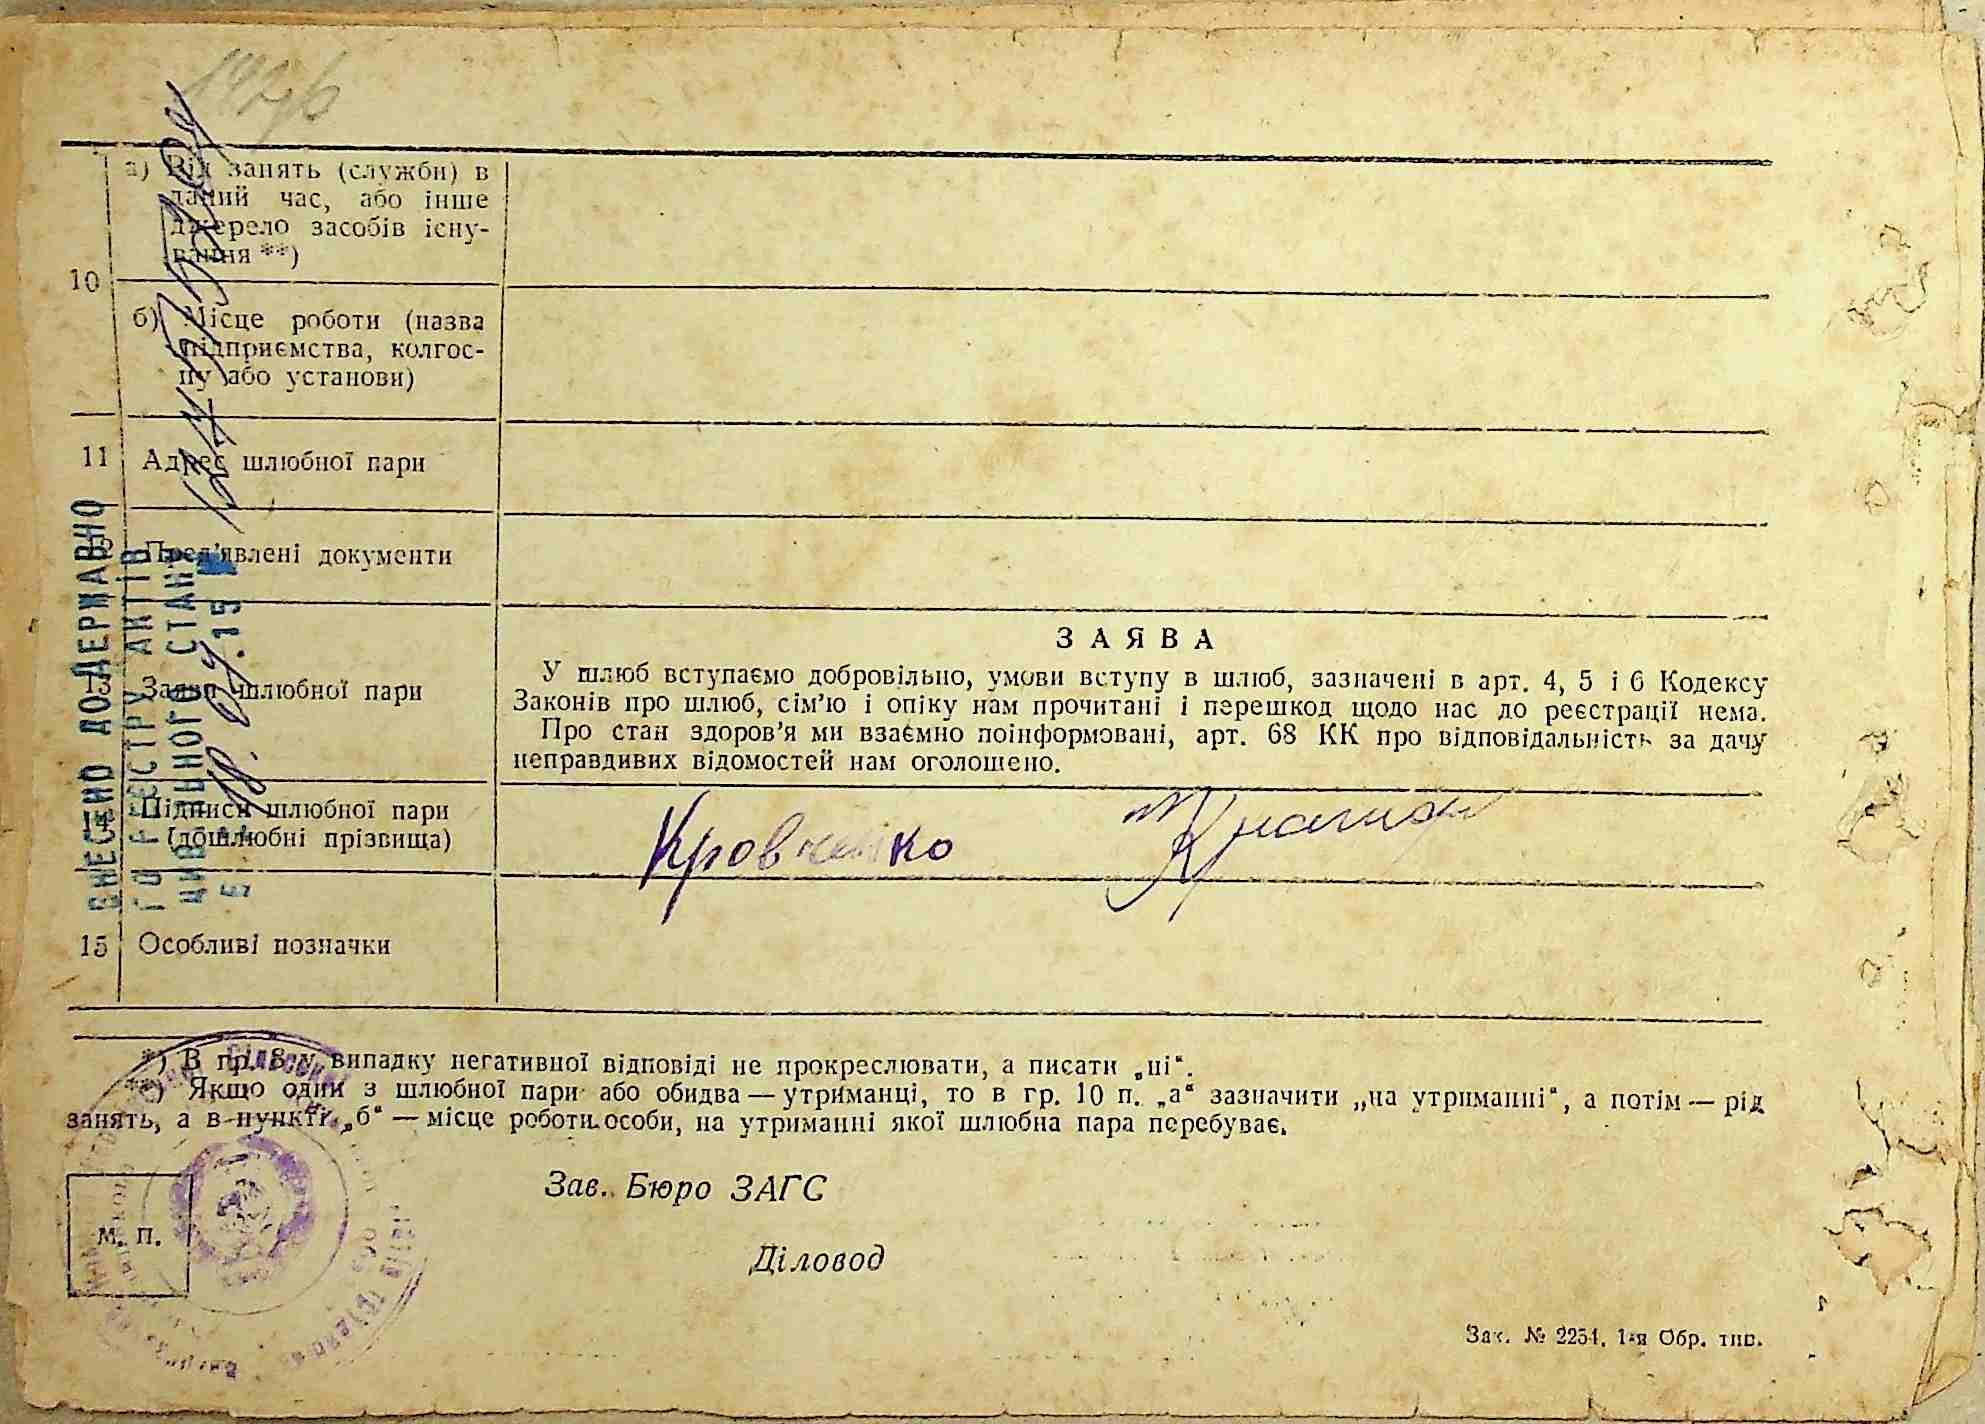 а) Рід занять (служби) в
даний час, або інше
джерело засобів існу-
вання **)
10
б) Місце роботи (назва
підприємства, колгос-
пу або установи)
11 Адрес шлюбної пари
12 Пред'явлені документи
13 Заява шлюбної пари
ЗАЯВА
У шлюб вступаємо добровільно, умови вступу в шлюб, зазначені в арт. 4, 5 і 6 Кодексу
Законів про шлюб, сім'ю і опіку нам прочитані і перешкод щодо нас до реєстрації нема.
Про стан здоров'я ми взаємно поінформовані, арт. 68 КК про відповідальність за дачу
неправдивих відомостей нам оголошено.
14 Підписи шлюбної пари
(дошлюбні прізвища)
Кровченко
15 Особливі позначки
ВНЕСЕНО ДО ДЕРЖАВНО
ГО РЕЄСТРУ АКТІВ
ЦИВІЛЬНОГО СТАНУ
*) В гр. 8 у випадку негативної відповіді не прокреслювати, а писати „ні“.
**) Якщо один з шлюбної пари або обидва — утриманці, то в гр. 10 п. „а“ зазначити „на утриманні“, а потім — рід
занять, а в пункті „б“ — місце роботи особи, на утриманні якої шлюбна пара перебуває.
Зав. Бюро ЗАГС
М. П.
Діловод
Зак. № 2254, 1-я Обр. тип.